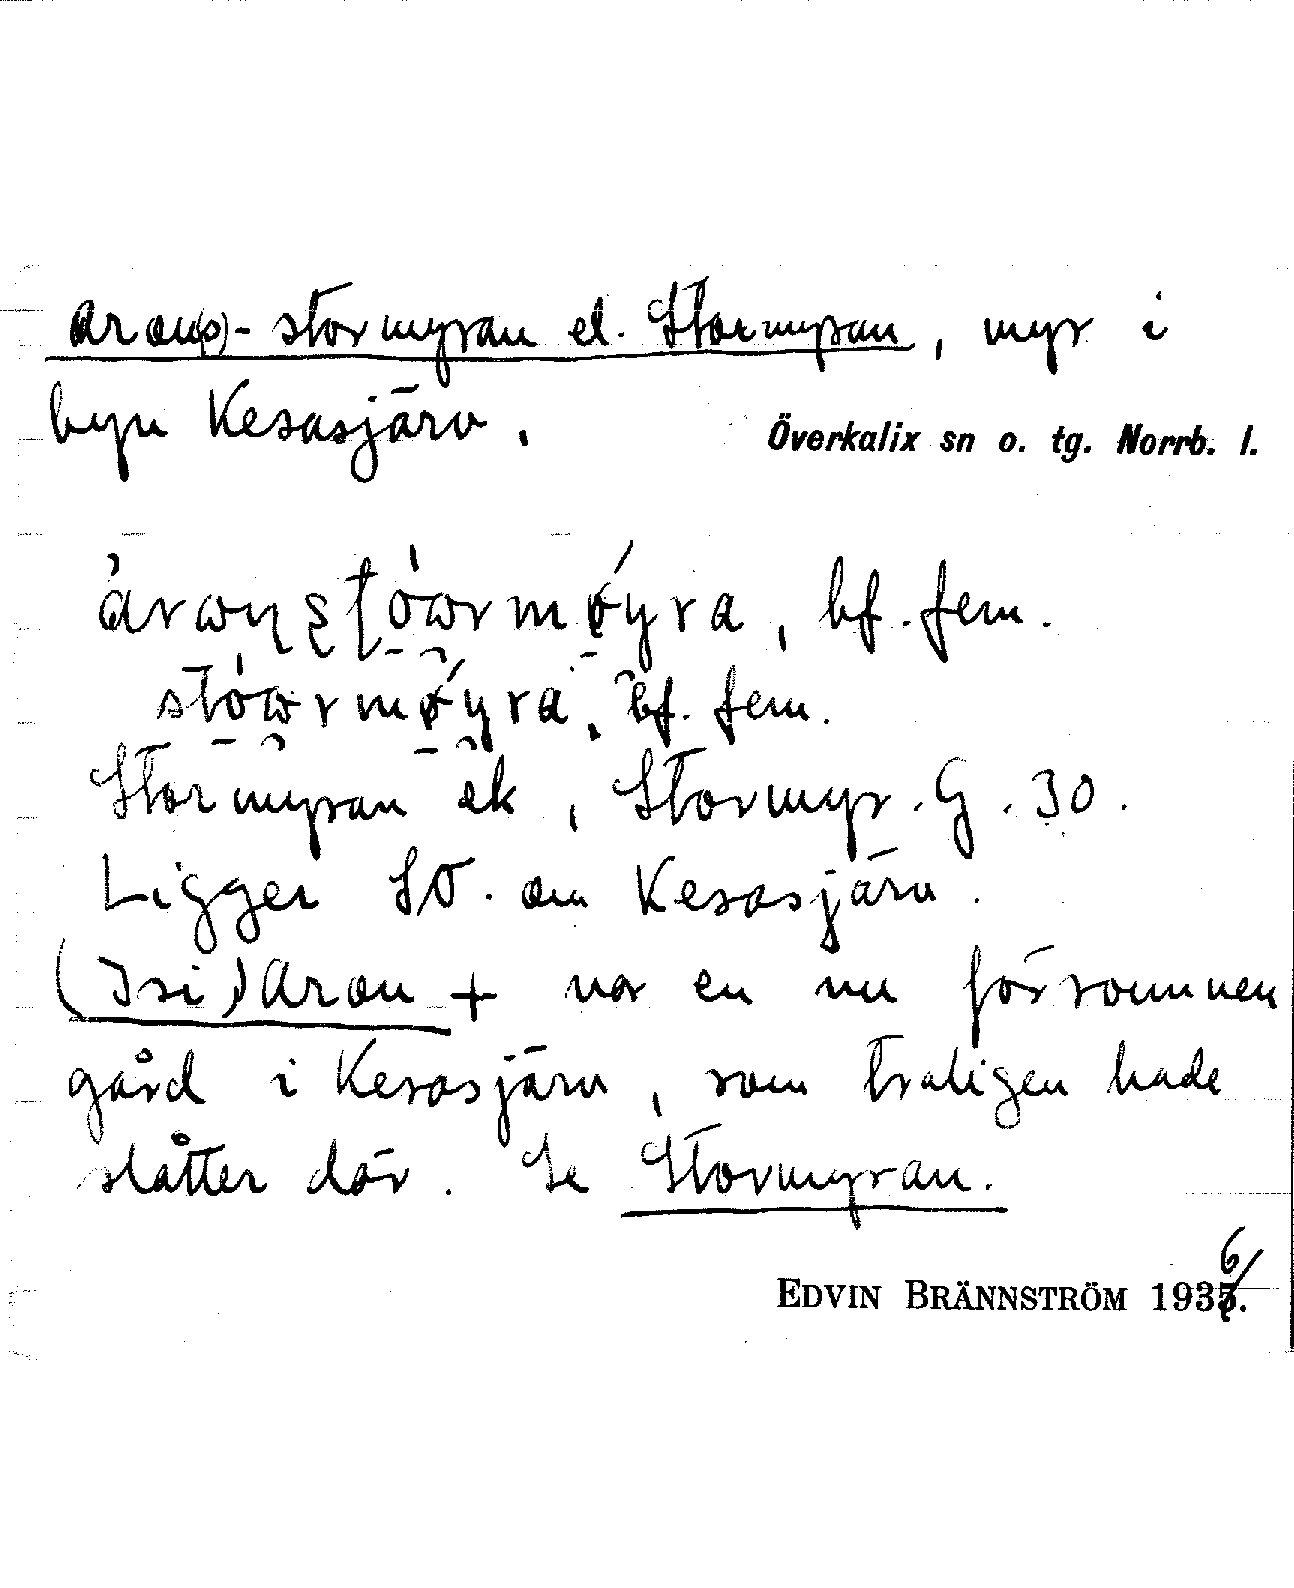 Aron(s)-stormyran el. Stormyran, myr i
byn Kesasjärv.
Överkalix sn o. tg. Norrb. l.
bf. fem.
bf. fem.
Stormyran ek, Stormyr. G. 30.
Ligger SO. om Kesasjärv.
(Isi)Aron + var en nu försvunnen
gård i Kesasjärv, som troligen hade
slåtter där. Se Stormyran.
6
EDVIN BRÄNNSTRÖM 1935.